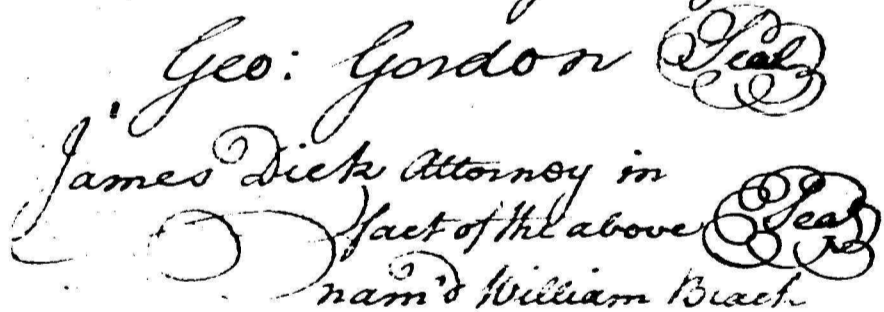 Geo: Gordon Seal
James Dick Attorney in
fact of the above Seal
nam'd William Brach